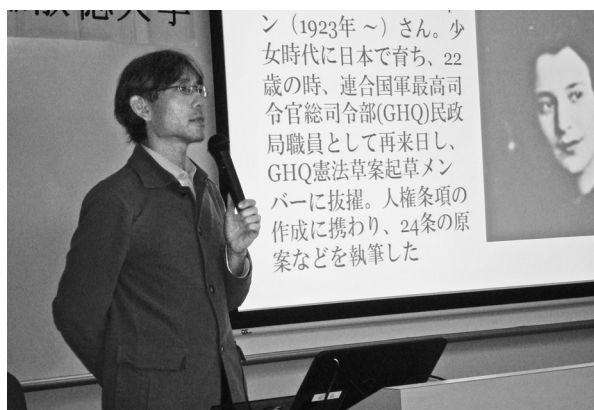 徳大学
ン（1923年 ～）さん。少
女時代に日本で育ち、22
歳の時、連合国軍最高司
令官総司令部(GHQ)民政
局職員として再来日し、
GHQ憲法草案起草メン
バーに抜擢。人権条項の
作成に携わり、24条の原
案などを執筆した